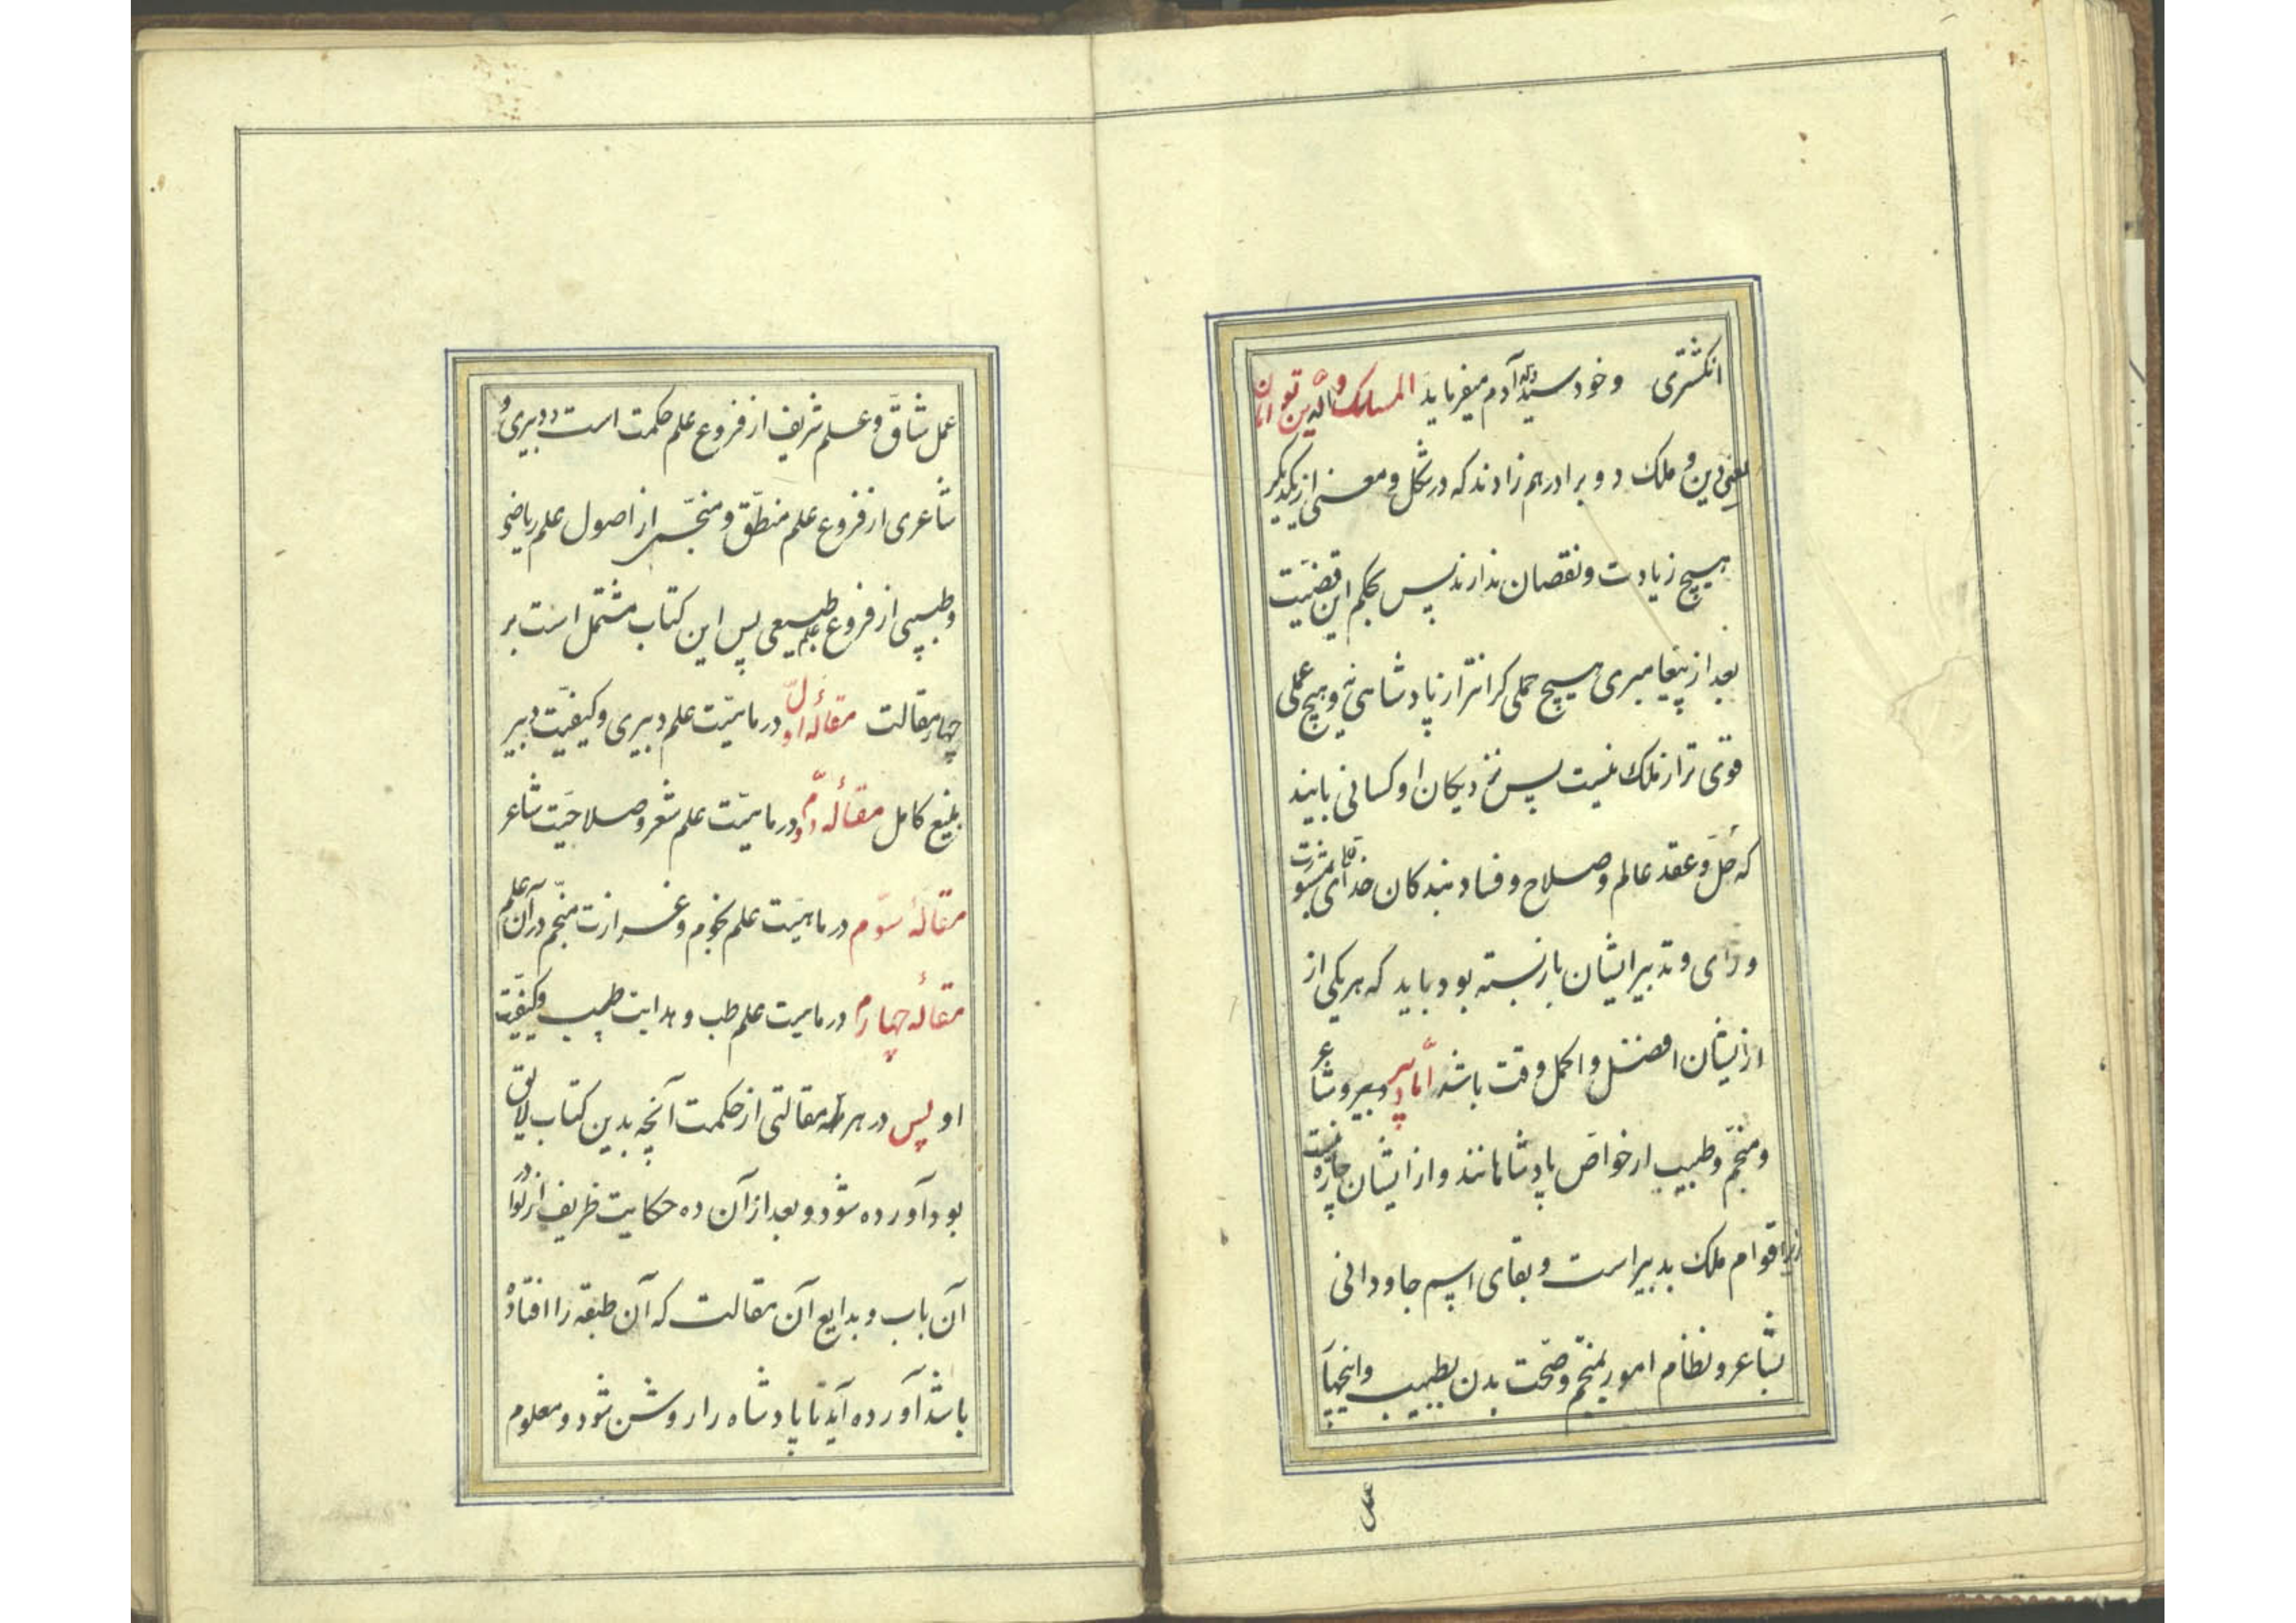 انکشتری وخود سید ولد آدم میفرماید الملک والدین توامان
یعنی دین و ملک دو برادر همزادند که در شکل و معنی از یکدیگر
هیچ زیادت و نقصان ندارند پس بحکم این قضیت
بعد از پیغامبری هیچ حملی کرانتر از پادشاهی نیه و هیچ عملی
قوی تر از ملک نیست پس نزدیکان او کسانی بایند
که حل و عقد عالم و صلاح و فساد بندکان خدای بمشورت
و رای و تدبیر ایشان بازبسته بود باید که هر یکی از
ازیشان افضل و اکمل وقت باشد اما دبیر و شاعر
و منجم و طبیب از خواص پادشاهانند و از ایشان چاره نیست
زیرا قوام ملک بدبیر است و بقای اسم جاودانی
بشاعر و نظام امور بمنجم و صحت بدن بطبیب و اینچهار
عمل
عمل شاق و علم شریف از فروع علم حکمت است دبیری و
شاعری از فروع علم منطق و منجمی از اصول علم ریاضی
و طبیبی از فروع علم طبیعی پس این کتاب مشتمل است بر
چهار مقالت مقالهٔ اول در ماهیت علم دبیری و کیفیت دبیر
بلیغ کامل مقالهٔ دوم در ماهیت علم شعر و صلاحیت شاعر
مقالهٔ سوم در ماهیت علم نجوم و غزارت منجم در آن علم
مقالهٔ چهارم در ماهیت علم طب و هدایت طبیب و کیفیت
او پس در هر مقالتی از حکمت آنچه بدین کتاب لایق
بود آورده شود و بعد از آن ده حکایت ظریف از نوادر
آن باب و بدایع آن مقالت که آن طبقه را افتاده
باشد آورده آید تا پادشاه را روشن شود و معلوم